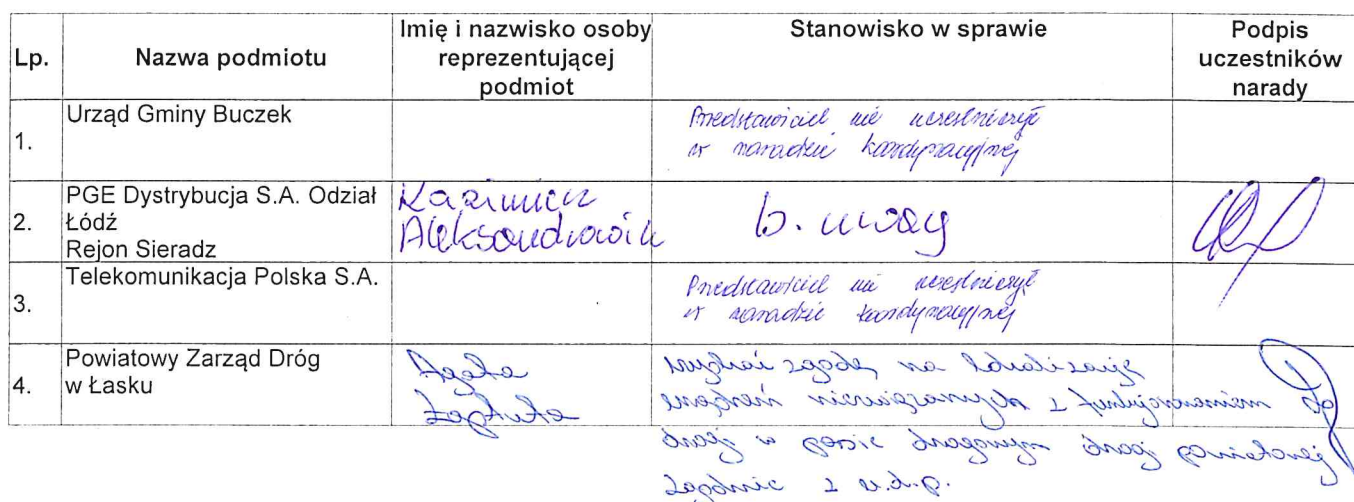 Lp.
Nazwa podmiotu
Imię i nazwisko osoby
reprezentującej
podmiot
Stanowisko w sprawie
Podpis
uczestników
narady
1.
Urząd Gminy Buczek
Przedstawiciel nie uczestniczył
w naradzie koordynacyjnej
2.
PGE Dystrybucja S.A. Odział
Łódź
Rejon Sieradz
Kazimierz
Aleksandrowicz
b. uwag
3.
Telekomunikacja Polska S.A.
Przedstawiciel nie uczestniczył
w naradzie koordynacyjnej
4.
Powiatowy Zarząd Dróg
w Łasku
Agata
uzyskać zgodę na lokalizację
urządzeń niezwiązanych z funkcjonowaniem
drogi w pasie drogowym drogi powiatowej
zgodnie z u.d.p.